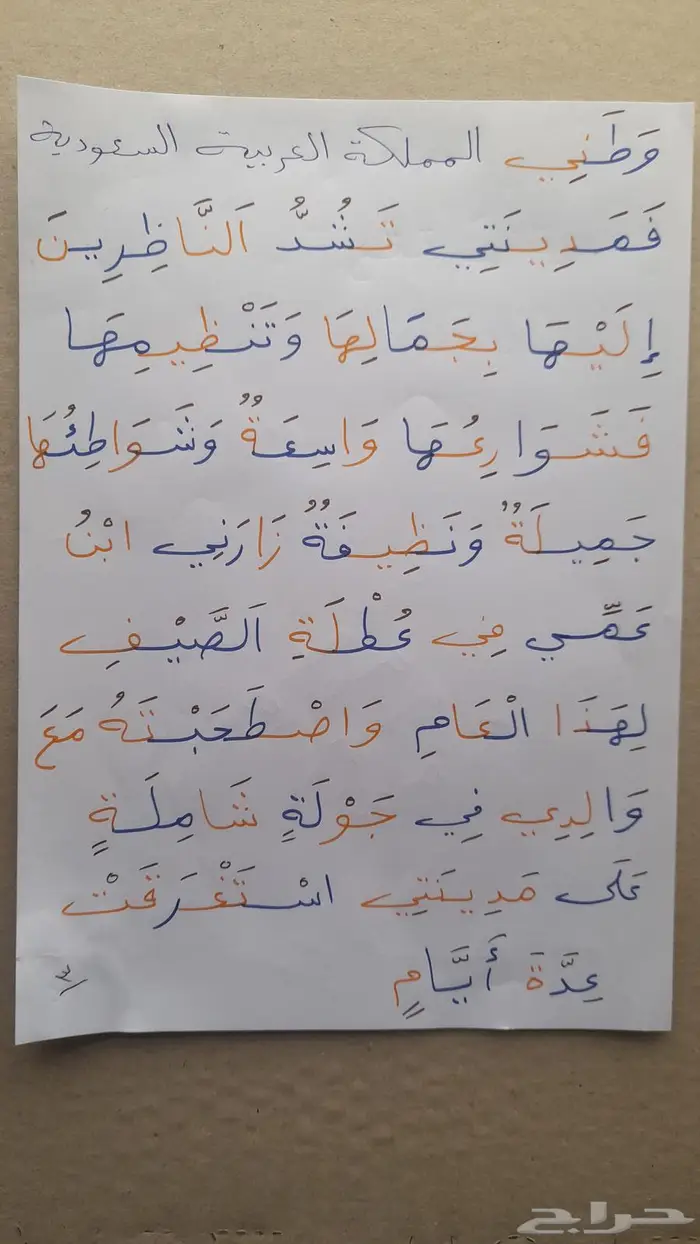 وَطَنِي المملكة العربية السعودية
فَمَدِينَتِي تَشُدُّ اَلنَّاظِرِينَ
إِلَيْهَا بِجَمَالِهَا وَتَنْظِيمِهَا
فَشَوَارِعُهَا وَاسِعَةٌ وَشَوَاطِئُهَا
جَمِيلَةٌ وَنَظِيفَةٌ زَارَنِي ابْنُ
عَمِّي فِي عُطْلَةِ اَلصَّيْفِ
لِهَذَا الْعَامِ وَاصْطَحَبْتَهُ مَعَ
وَالِدِي فِي جَوْلَةٍ شَامِلَةٍ
عَلَى مَدِينَتِي اسْتَغْرَقَتْ
عِدَّةَ أَيَّامٍ
حراج